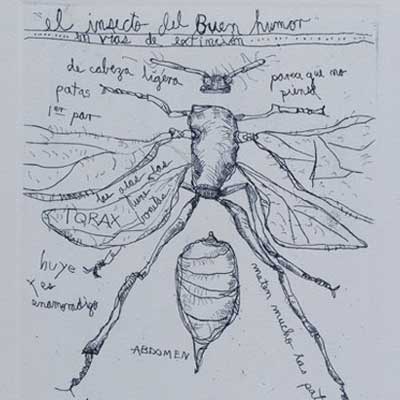 el insecto del Buen humor
en vias de extinción
de cabeza ligera
para que no
piense
patas
1er par
las alas dos
TORAX
huye
y es
enamoradizo
meten mucho las pat
ABDOMEN